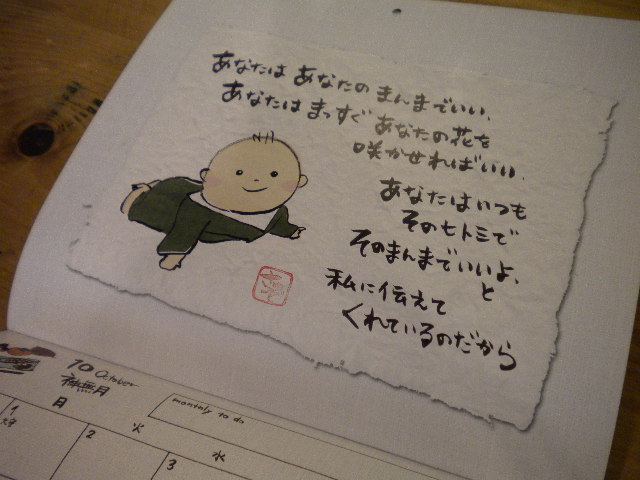 あなたは あなたの まんまでいい、
あなたは まっすぐ あなたの花を
咲かせればいい、
あなたはいつも
そのヒトミで
そのまんまでいいよ、
と
私に伝えて
くれているのだから
10 October
神無月
monthly to do
日
火
水
1
2
3